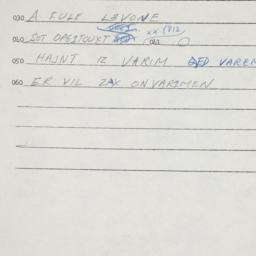 030 A FULE LEVONE
040 SOT OPGITOUKT xx (812 041
050 HAJNT IZ VARIM RED VAREM
060 ER VIL ZAX ONVARIMEN